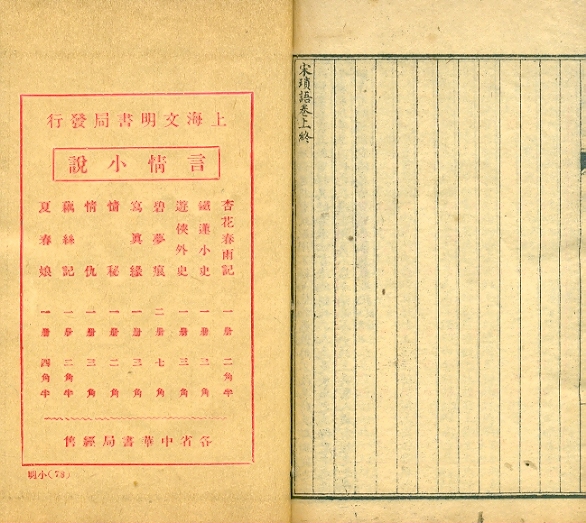 宋瑣語卷上終
上海文明書局發行
言情小說
杏花春雨記 一册 二角半
小史 一册 二角
遊俠外史 一册 三角
碧夢痕 二册 七角
寫真緣 一册 三角
情秘 一册 二角
情仇 一册 三角
藕絲記 一册 二角半
夏春娘 一册 四角半
各省中華書局經售
明小